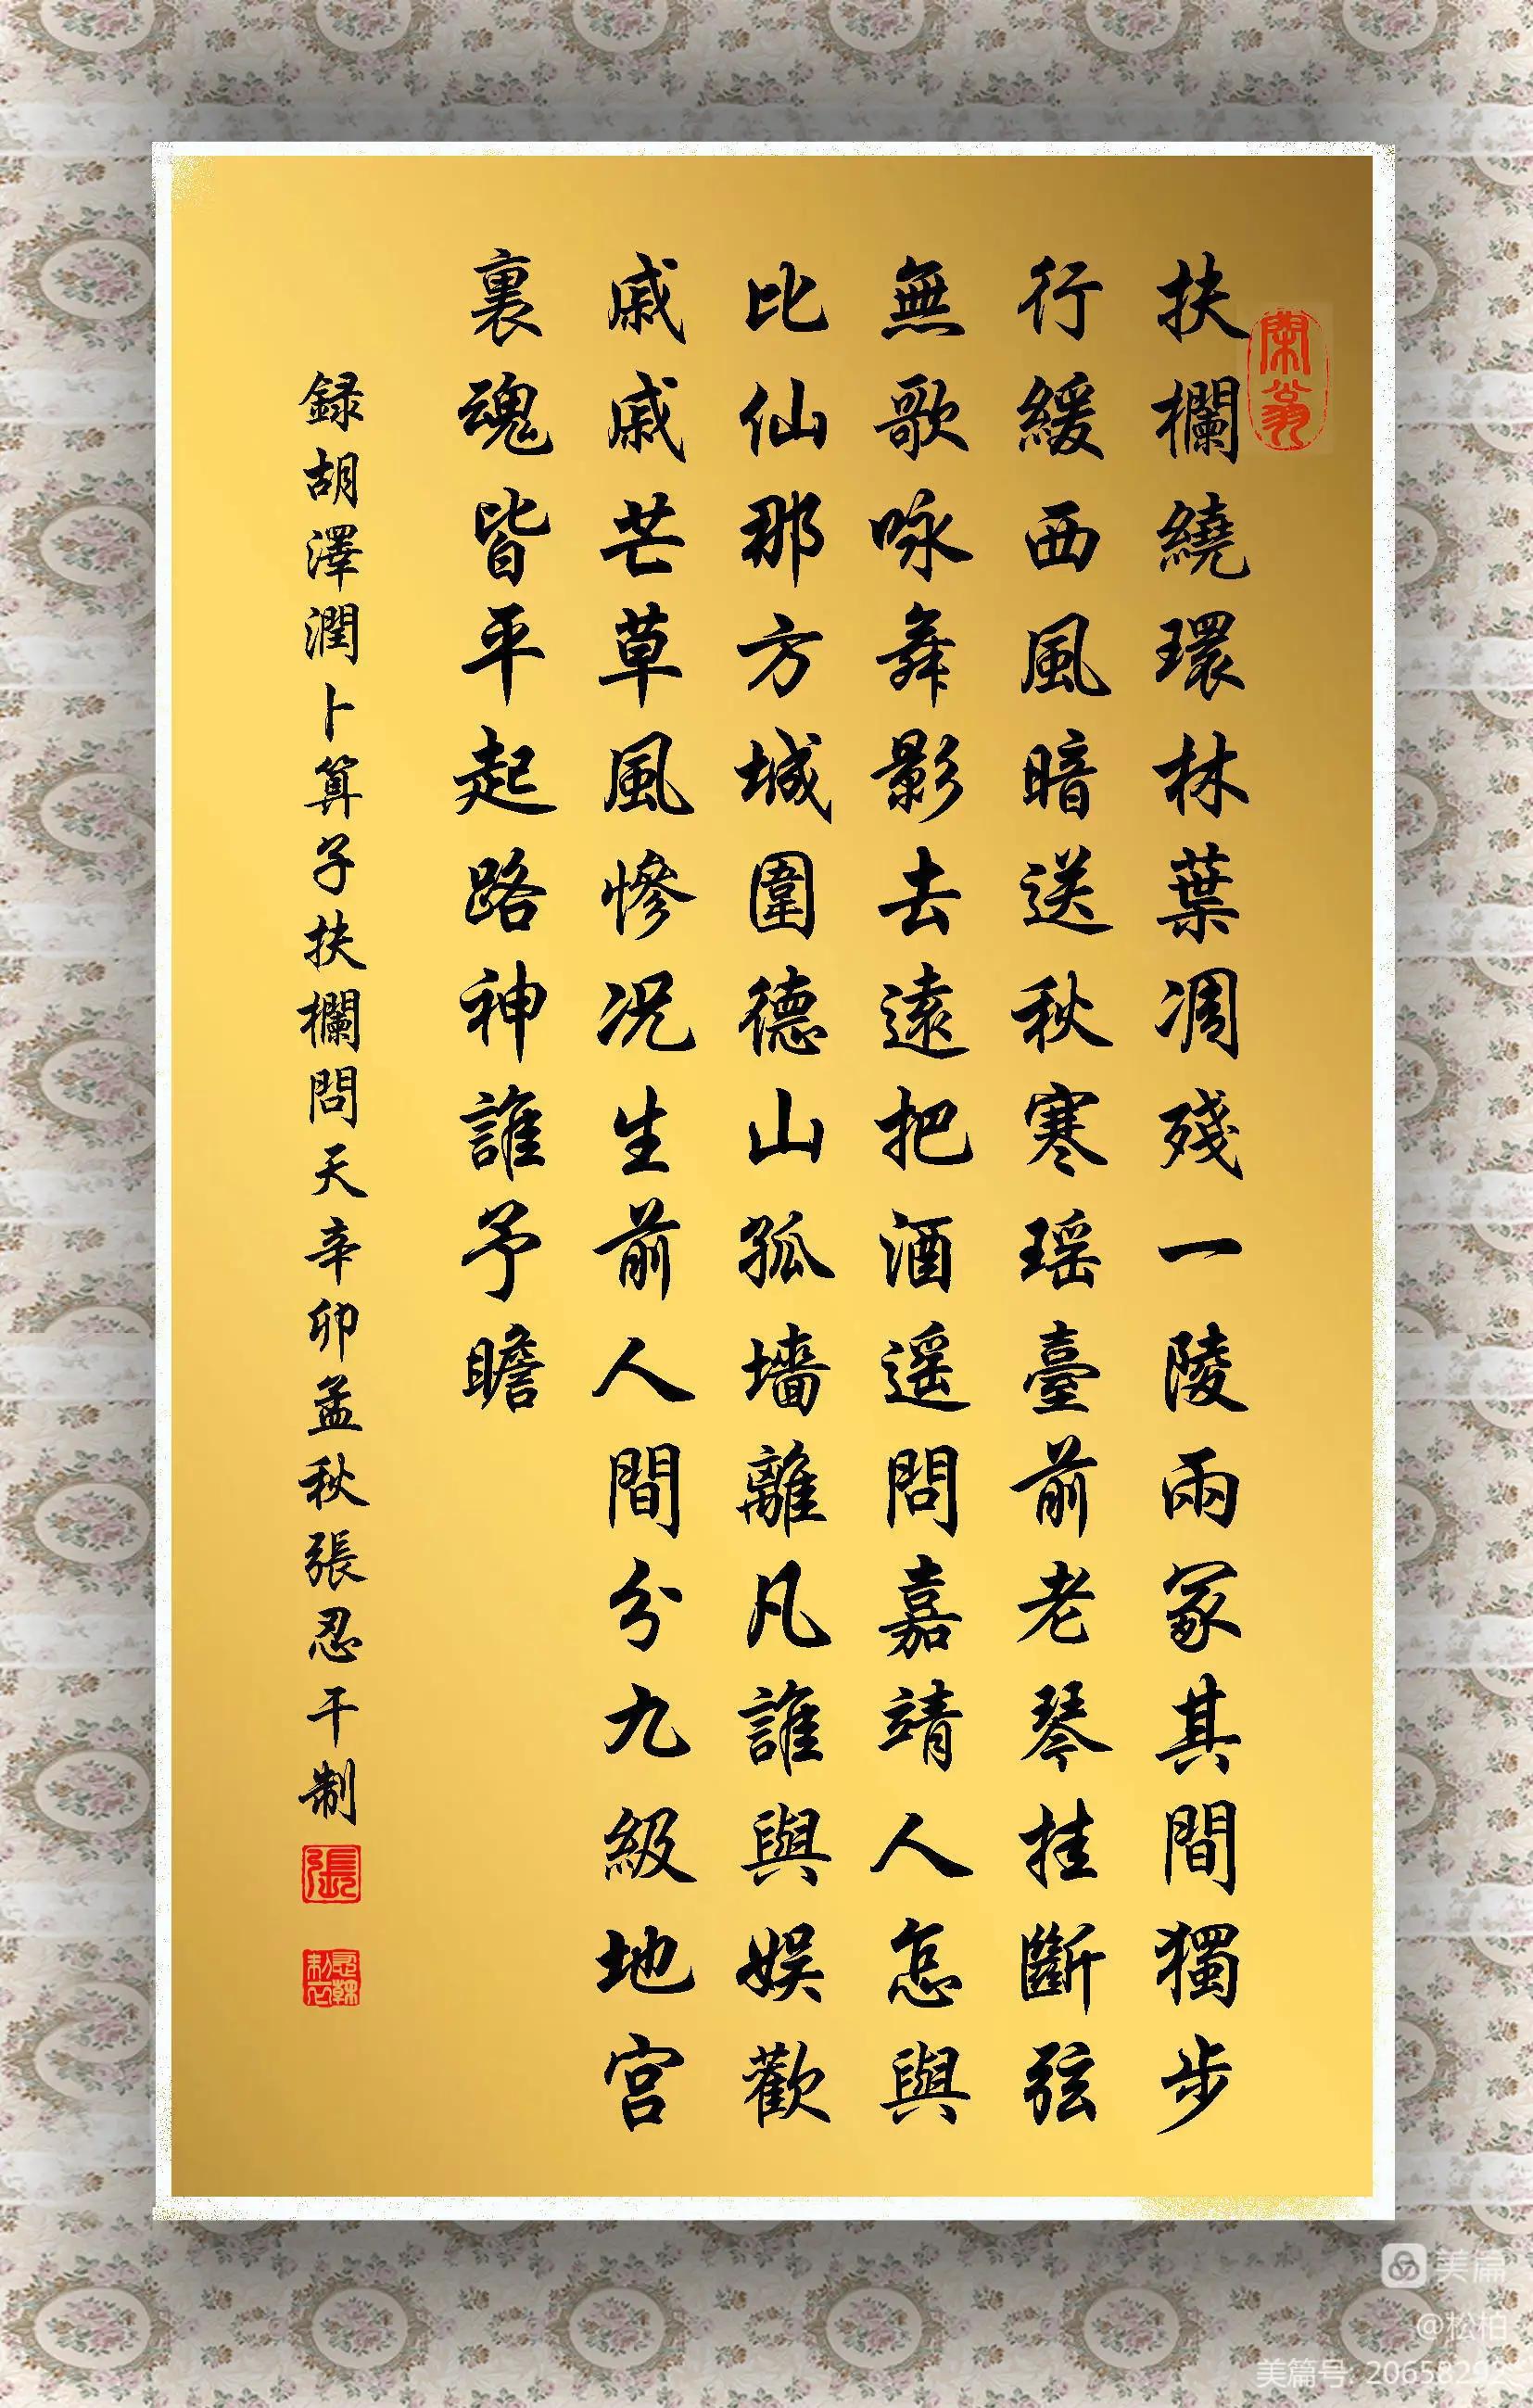 扶欄繞環林葉凋殘一陵兩冢其間獨步
行緩西風暗送秋寒瑶臺前老琴挂斷弦
無歌咏舞影去遠把酒遥問嘉靖人怎與
比仙那方城圍德山孤墻離凡誰與娱歡
戚戚芒草風慘况生前人間分九級地宫
裏魂皆平起路神誰予瞻
録胡澤潤卜算子扶欄問天辛卯孟秋張忍干制
張
美篇
@松柏
美篇号: 20658292